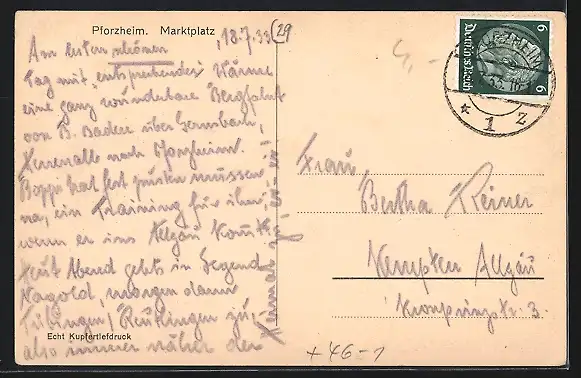 Pforzheim. Marktplatz
18.7.33 (29
Am ersten schönen
Tag mit entsprechender Wärme
eine ganz wunderbare Bergfahrt
von B. Baden über Gernsbach,
Herrenalb nach Pforzheim.
hat fest pusten müssen
na, ein Training für ihn,
wenn er ins Allgäu kommt.
Heut Abend gehts in Gegend
Nagold, morgen dann
Tübingen/Reutlingen zu,
also immer näher der
Heimat zu
Echt Kupfertiefdruck
Deutsches Reich
6
6
PFORZHEIM
* 1 z
Frau
Bertha Reiner
Kempten Allgäu
Kronprinzstr. 3.
4,-
+46-1